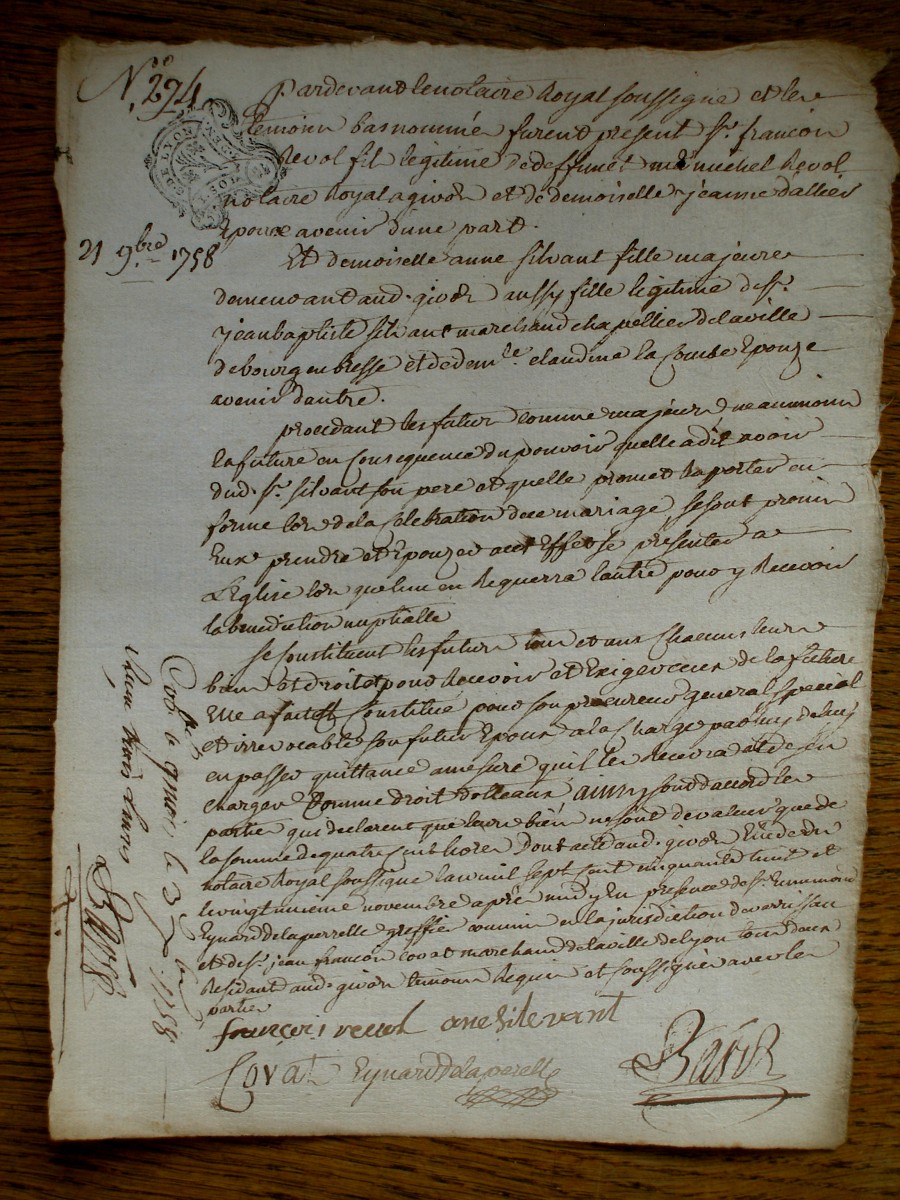 N.º 274
GEN. DE LYON
21 9.bre 1758
Pardevant le notaire Royal soussigné et les
temoins bas nommés furent present Sr. françois
Revol fils legitime de deffunct Me michel Revol
notaire Royal a givors et de demoiselle jeanne dallier
Epoux avenir d'une part.
Et demoiselle anne silvant fille majeure
demeurant aud. givors aussy fille legitime de Sr.
jean baptiste silvant marchand chapellier de la ville
de bourg en bresse et de dem.lle claudine la Combe Epouze
avenir d'autre.
procedant les futurs comme majeurs neanmoins
la future en Consequence du pouvoir quelle a dit avoir
dud. Sr. silvant son pere et quelle promet Raporter en
forme lors de la Celebration de ce mariage se sont promis
Eux prendre et Epouzer a cet Effet se presenter a
L'Eglise lors que l'un en Requerra l'autre pour y Recevoir
la benediction nuptialle
Se Constituent les futurs tous et uns Chacuns leurs
biens et droits et pour Recevoir et Exiger ceux de la future
Elle a fait et Constitué pour son procureur general special
et irrevocable son futur Epoux a la Charge par luy de luy
en passer quittance a mesure qu'il les Recevra et de s'en
charger Comme droits dotteaux, ainsy sont d'accord les
partie qui declarent que leurs biens ne sont de valeur que de
la somme de quatre Cent livres Dont acte aud. givors Etude du
notaire Royal soussigné lan mil sept Cent cinquante huit et
le vingt unieme novembre après midy En presence de Sr. Ennemond
Eynard de laperrelle greffier commis en la jurisdiction de
et de Sr. jean françois Covat marchand de la ville de Lyon tous deux
Residant aud. givors temoins Requis et soussignés avec les
partie
françois revol ane silevant
Covat Eynard delaperelle
Con.llé a givors le 3 x.bre 1758